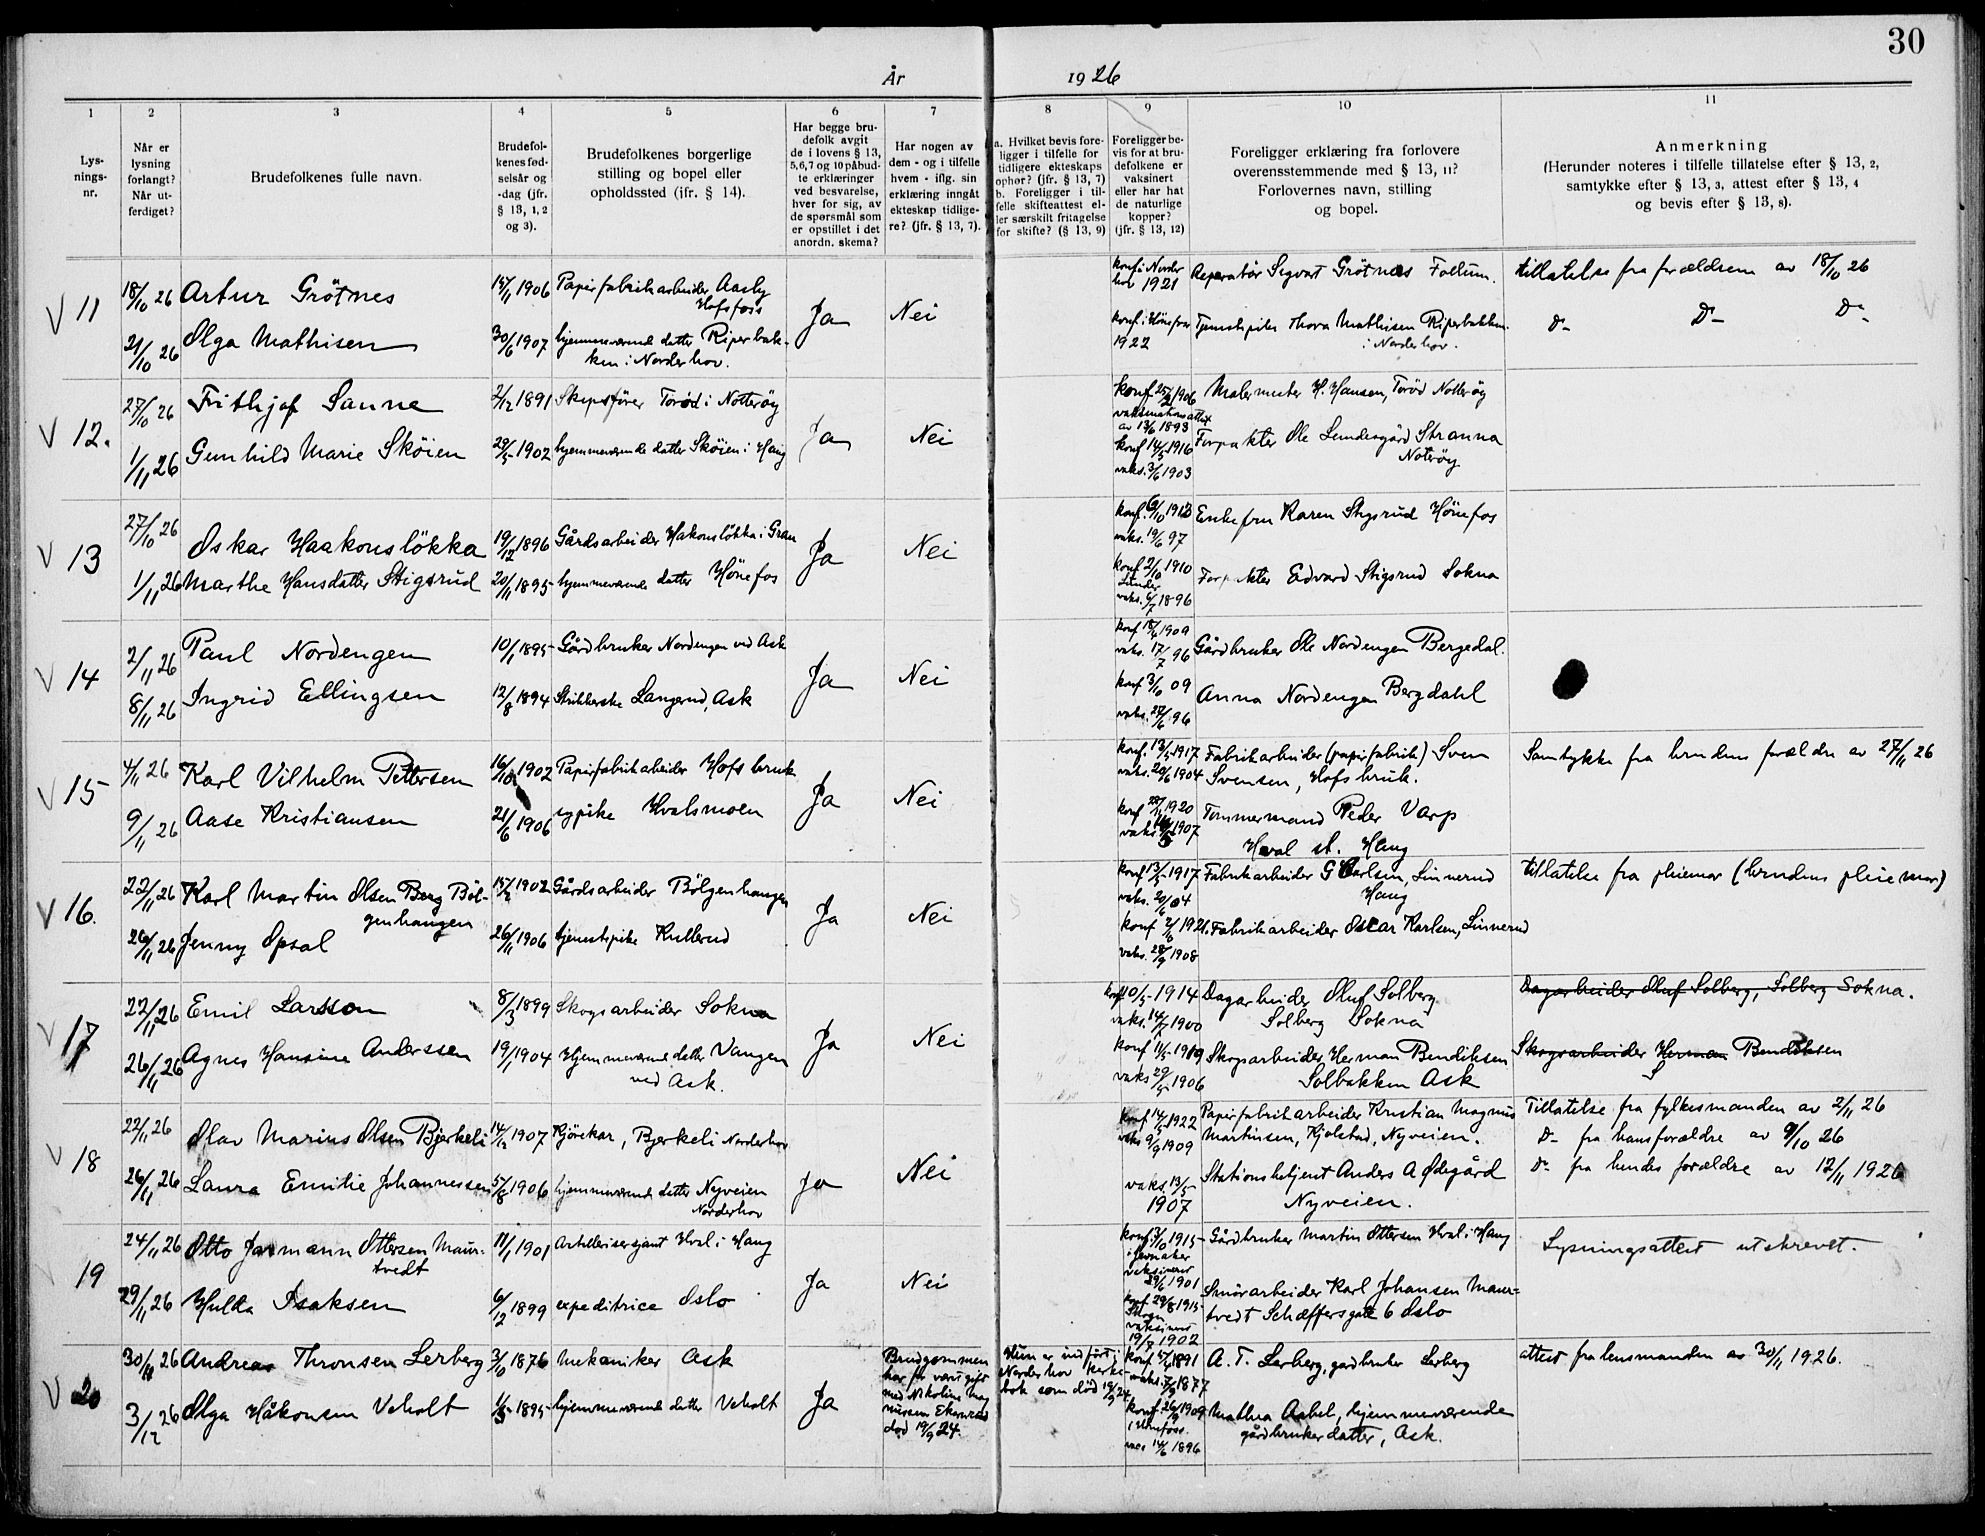 30
År 1926
1 2 3 4 5 6 7 8 9 10 11
Lys-
nings-
nr.
Når er
lysning
forlangt?
Når ut-
ferdiget?
Brudefolkenes fulle navn.
Brudefol-
kenes fød-
selsår og
-dag (jfr.
§ 13, 1, 2
og 3).
Brudefolkenes borgerlige
stilling og bopel eller
opholdssted (ifr. § 14).
Har begge bru-
defolk avgit
de i lovens § 13,
5,6,7 og 10 påbud-
te erklæringer
ved besvarelse,
hver for sig, av
de spørsmål som
er opstillet i det
anordn. skema?
Har nogen av
dem - og i tilfelle
hvem - iflg. sin
erklæring inngått
ekteskap tidlige-
re? (jfr. § 13, 7).
a. Hvilket bevis fore-
ligger i tilfelle for
tidligere ekteskaps
ophør? (jfr. § 13, 7)
b. Foreligger i til-
felle skifteattest el-
ler særskilt fritagelse
for skifte? (§ 13, 9)
Foreligger be-
vis for at bru-
defolkene er
vaksinert
eller har hat
de naturlige
kopper?
(jfr. § 13, 12)
Foreligger erklæring fra forlovere
overensstemmende med § 13, 11?
Forlovernes navn, stilling
og bopel.
Anmerkning
(Herunder noteres i tilfelle tillatelse efter § 13, 2,
samtykke efter § 13, 3, attest efter § 13, 4
og bevis efter § 13, 8).
V 11
18/10 26 Artur Grötnes 15/11 1906 Papirfabrikarbeider Aasby
Hofsfoss
Ja Nei
konf i Norder
hov 1921
Reparatör Sigvart Grötnes Follum.
tillatelse fra forældrene av 18/10 26
21/10 26 Olga Mathisen 30/6 1907 hjemmeværende datter Riperbak-
ken i Norderhov.
konf. i Hönefoss
1922
Tjenestepike Thora Mathisen Riperbakken
i Norderhov.
D- D- D-
V 12.
27/10 26 Frithjof Sanne 2/12 1891 Skipsfører Torød i Nøtterøy
Ja Nei
konf 25/3 1906
vaksinationsattest
av 13/6 1893
Malermester H. Hansen, Torød Nøtterøy
1/11 26 Gunhild Marie Sköien 28/5 1902 hjemmeværende datter Sköien i Haug
konf 14/5 1916
vaks. 3/6 1903
Forpakter Ole Lundesgård Stranna
Nøterøy
V 13
27/10 26 Oskar Haakonslökka 19/12 1896 Gårdsarbeider Hakonslökka i Gran
Ja Nei
konf. 6/10 1912
vaks. 19/6 97
Enkefru Karen Stigsrud Hönefos
1/11 26 Marthe Hansdatter Stigsrud 20/11 1895 hjemmeværende datter Hönefos
konf 2/10 1910
Lunder
vaks. 6/7 1896
Forpakter Edvard Stigsrud Sokna
V 14
2/11 26 Paul Nordengen 10/1 1895 Gårdbruker Nordengen ved Ask
Ja Nei
konf 18/6 1909
vaks. 17/7 96
Gårdbruker Ole Nordengen Bergedal.
8/11 26 Ingrid Ellingsen 12/8 1894 Strikkerske Langerud, Ask
konf 3/10 09
vaks. 27/6 96
Anna Nordengen Bergdahl
V 15
4/11 26 Karl Vilhelm Pettersen 16/10 1902 Papirfabrikarbeider Hofsbruk
Ja Nei
konf. 13/5 1917
vaks. 20/6 1904
Fabrikarbeider (papirfabrik) Sven
Svensen, Hofsbruk.
Samtykke fra brudens forældre av 27/11 26
9/11 26 Aase Kristiansen 21/6 1906 sypike Hvalsmoen
konf 28/11 1920
vaks. 1907
Tømmermand Peder Varp
Hval st. Haug
V 16.
22/11 26 Karl Martin Olsen Berg Böl-
genhaugen
15/2 1902 Gårdsarbeider Bölgenhaugen
Ja Nei
konf 13/5 1917
vaks. 20/6 04
Fabrikarbeider G Carlsen, Linnerud
Haug
tillatelse fra pleiemor (brudens pleiemor)
26/11 26 Jenny Opsal 26/11 1906 tjenestepike Kullerud
konf 2/10 1921.
vaks. 28/9 1908
Fabrikarbeider Oscar Karlsen, Linnerud
V 17
22/11 26 Emil Larsson 8/3 1899 Skogsarbeider Sokna
Ja Nei
konf 10/5 1914
vaks. 14/7 1900
Dagarbeider Oluf Solberg
Solberg Sokna
Dagarbeider Oluf Solberg, Solberg Sokna.
26/11 26 Agnes Hansine Anderssen 19/1 1904 Hjemmeværende datter Vangen
ved Ask.
konf 11/5 1919
vaks 29/5 1906
Skogsarbeider Herman Bendiksen
Solbakken Ask
Skogsarbeider Herman Bendiksen
S
V 18
22/11 26 Olav Marius Olsen Bjerkeli 14/12 1907 Kjörekar, Bjerkeli Norderhov
Ja Nei
konf 14/5 1922
vaks 9/9 1909
Papirfabrikarbeider Kristian Magnus
Martinsen, Kjolstad, Nyveien.
Tillatelse fra fylkesmanden av 2/11 26
D- fra hans forældre av 9/10 26
26/11 26 Laura Emilie Johannessen 5/8 1906 hjemmeværende datter Nyveien
Norderhov
vaks 13/5
1907
Stationsbetjent Anders A Ødegård
Nyveien.
D- fra hendes forældre av 12/11 1926
19
24/11 26 Otto Jarmann Ottersen Maur-
tvedt
11/1 1901 Artillerisersjant Hval i Haug
Ja Nei
konf. 3/10 1915
i Jevnaker
vaksinert
29/6 1901
Gårdbruker Martin Ottersen Hval i Haug
Lysningsattest utskrevet.
29/11 26 Hulda Isaksen 6/12 1899 expeditrice Oslo
konf 29/8 1915
vaksinert
19/9 1902
Smörarbeider Karl Johansen Maur-
tvedt Schæffersgate 6 Oslo
V 20
30/11 26 Andreas Thronsen Lerberg 3/10 1876 Mekaniker Ask
Ja
Brudgommen
har før vært gift
med Nikoline Mag
nussen Ekornrud
død 19/9 24.
Hun er indført i
Norderhov kirke-
bok som død 19/9 24
konf 5/4 1891
vaks. 7/9 1877
A. T. Lerberg, gardbruker Lerberg
attest fra lensmanden av 30/11 1926.
3/12 26 Olga Håkonsen Veholt 1/3 1895 hjemmeværende datter Veholt
konf 26/9 1909
i Hönefoss.
vacs 14/6 1896
Mathea Aabel, hjemmeværende
gårdbrukerdatter, Ask.